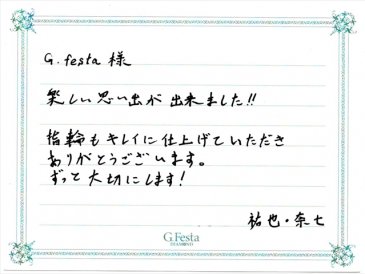 G.festa 様
楽しい思い出が出来ました!!
指輪もキレイに仕上げていただき
ありがとうございます。
ずって大切にします!
祐也・奈七
G.Festa
DIAMOND